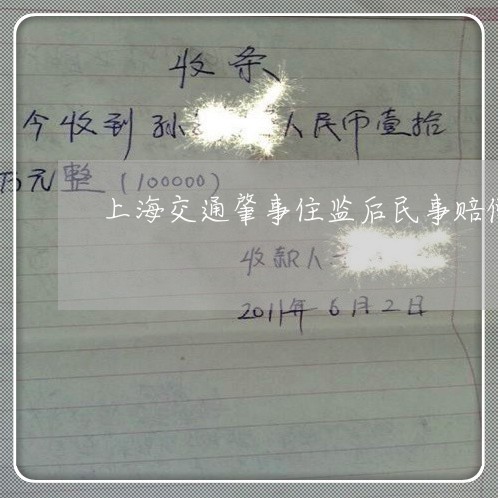 收条
今收到孙人民币壹拾
万元整(100000)
上海交通肇事住监后民事赔偿
收款人
2011年6月2日